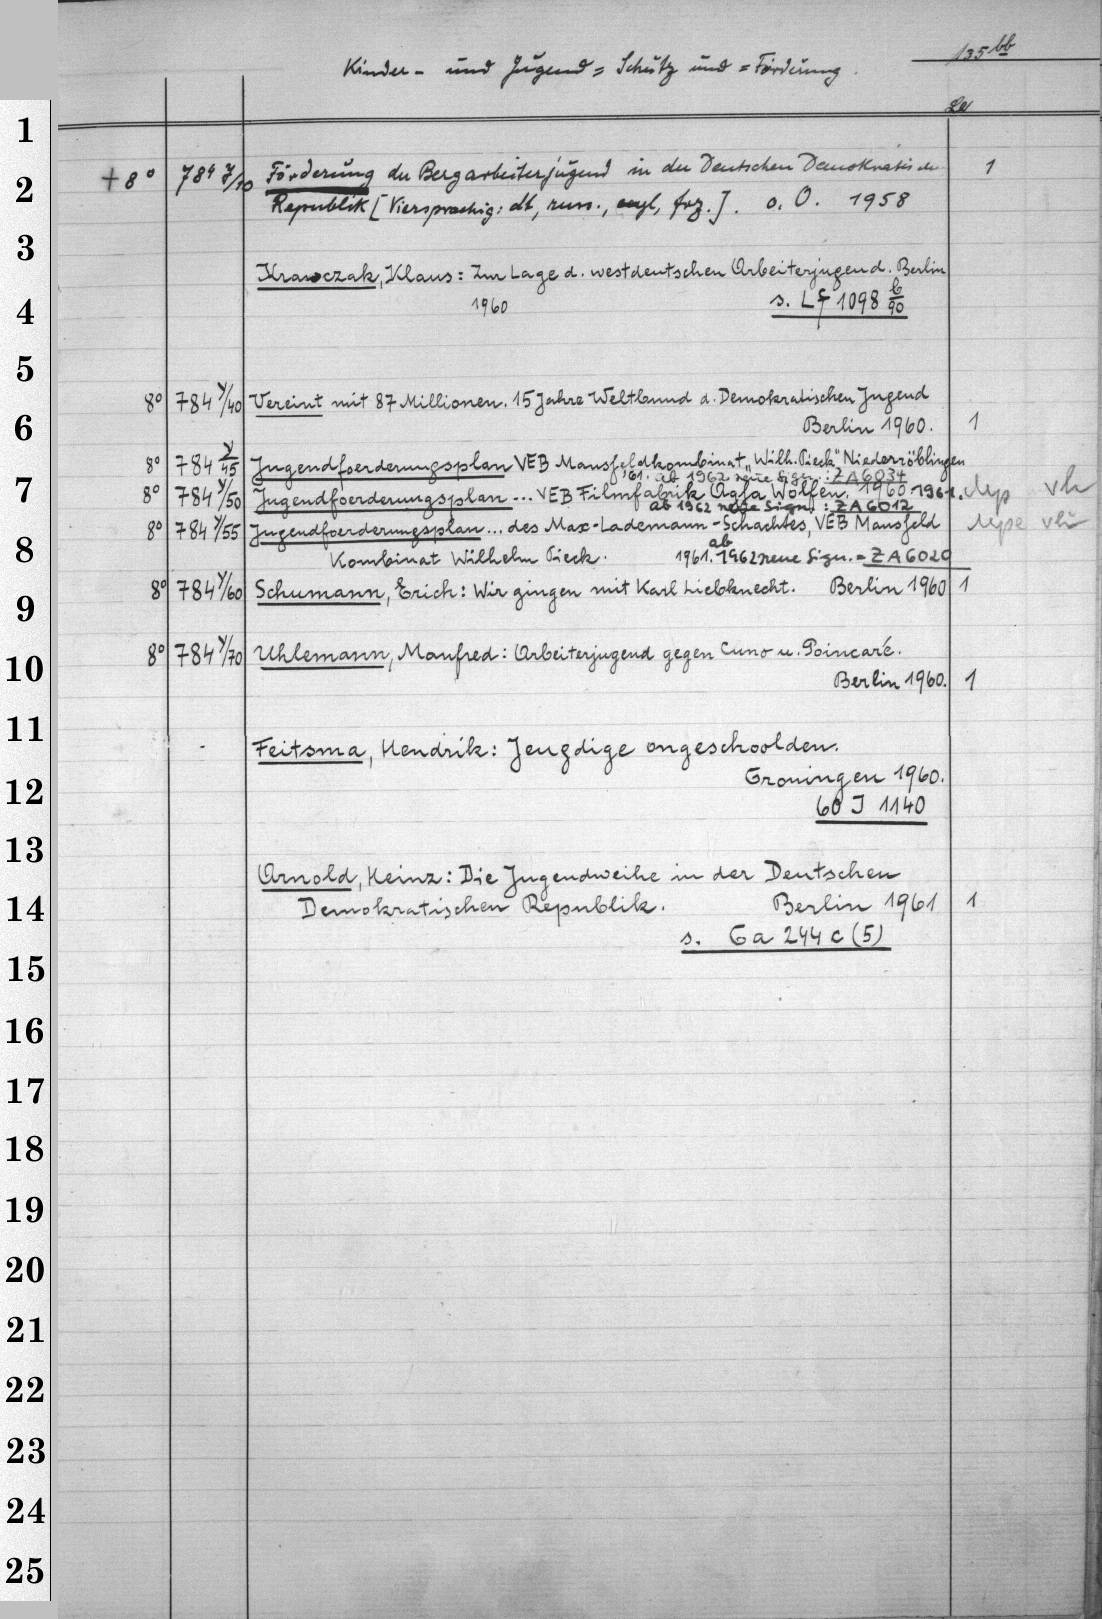 135 bb
Kinder- und Jugend= Schutz und =Förderung.
La
1
2
3
4
5
6
7
8
9
10
11
12
13
14
15
16
17
18
19
20
21
22
23
24
25
+ 8° 784 y/10 Förderung der Bergarbeiterjugend in der Deutschen Demokratischen 1
Republik [Viersprachig: dt, russ., engl, frz.]. o. O. 1958
Krawczak, Klaus: Zur Lage d. westdeutschen Arbeiterjugend. Berlin
1960 s. Lf 1098 b/90
8° 784 y/40 Vereint mit 87 Millionen. 15 Jahre Weltbund d. Demokratischen Jugend
Berlin 1960. 1
8° 784 y/45 Jugendfoerderungsplan VEB Mansfeldkombinat "Wilh. Pieck" Niederröblingen
'61. ab 1962 neue Sign.: ZA6034
8° 784 y/50 Jugendfoerderungsplan ... VEB Filmfabrik Agfa Wolfen. 1960-1961.
ab 1962 neue Sign.: ZA6012
8° 784 y/55 Jugendfoerderungsplan ... des Max-Lademann-Schachtes, VEB Mansfeld
Kombinat Wilhelm Pieck. 1961. ab 1962 neue Sign. = ZA6020
8° 784 y/60 Schumann, Erich: Wir gingen mit Karl Liebknecht. Berlin 1960 1
8° 784 y/70 Uhlemann, Manfred: Arbeiterjugend gegen Cuno u. Poincaré.
Berlin 1960. 1
Feitsma, Hendrik: Jeugdige ongeschoolden.
Groningen 1960.
60 J 1140
Arnold, Heinz: Die Jugendweihe in der Deutschen
Demokratischen Republik. Berlin 1961 1
s. Ga 244 c (5)